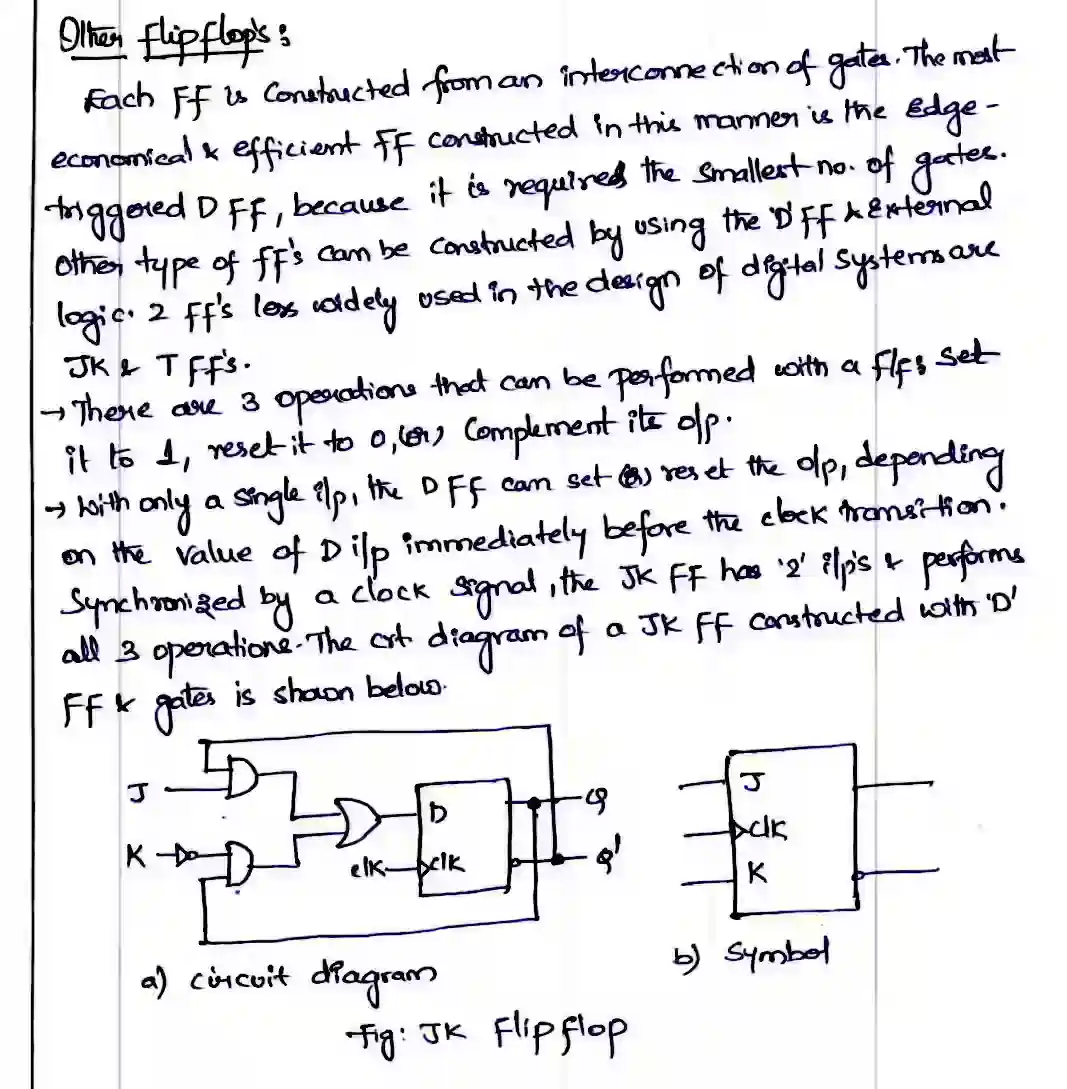 Other flipflop's :
Each FF is Constructed from an interconnection of gates. The most
economical & efficient FF constructed in this manner is the Edge-
triggered D FF, because it is required the smallest no. of gates.
Other type of FF's can be constructed by using the 'D' FF & External
logic. 2 FF's less widely used in the design of digital systems are
JK & T FF's.
→ There are 3 operations that can be performed with a F/F: Set
it to 1, reset it to 0, (or) Complement its o/p.
→ With only a single i/p, the D FF can set (or) reset the o/p, depending
on the value of D i/p immediately before the clock transition.
Synchronized by a clock signal, the JK FF has '2' i/p's & performs
all 3 operations. The ckt diagram of a JK FF constructed with 'D'
FF & gates is shown below.
J
K
D
clk
clk
Q
Q'
J
clk
K
a) circuit diagram
b) Symbol
Fig: JK Flipflop